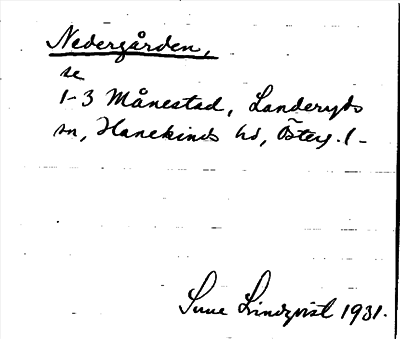 Nedergården,
se
1-3 Månestad, Landeryds
sn, Hanekinds hd, Österg. l-
Sune Lindqvist 1931.